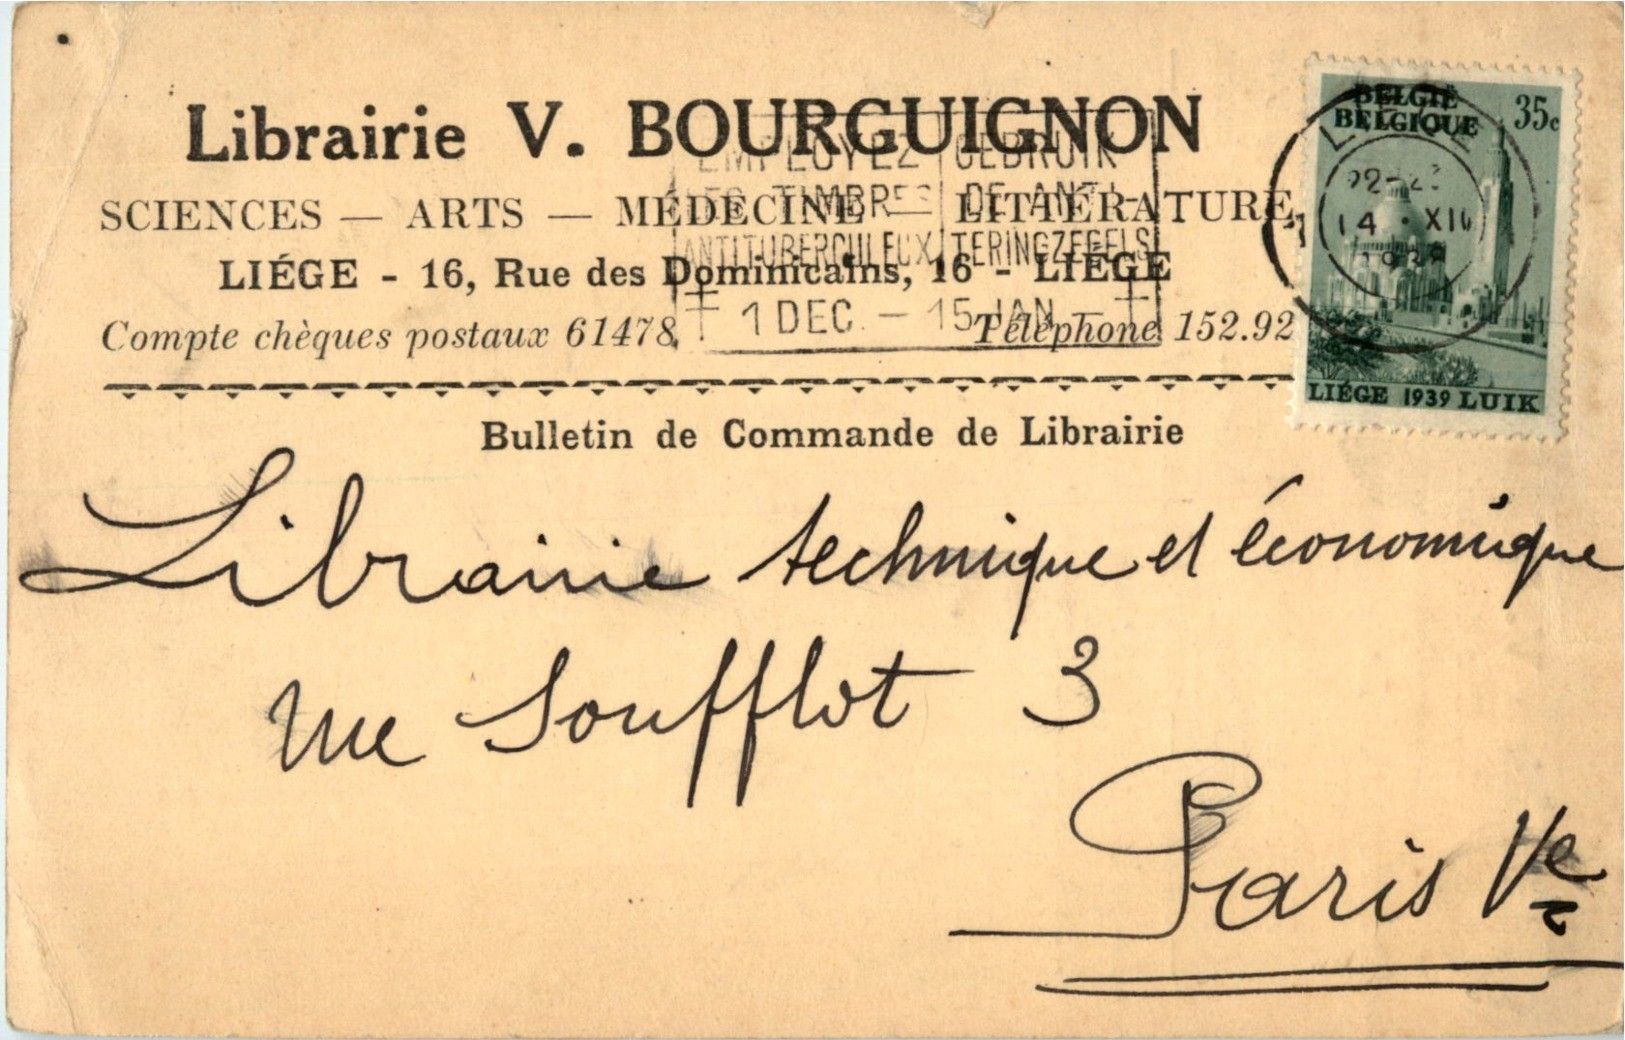 Librairie V. BOURGUIGNON
SCIENCES — ARTS — MÉDECINE — LITTÉRATURE,
LIÉGE - 16, Rue des Dominicains, 16 - LIÉGE
Compte chèques postaux 61478, Téléphone 152.92
Bulletin de Commande de Librairie
EMPLOYEZ GEBRUIK
LES TIMBRES DE ANTI-
ANTITUBERCULEUX TERINGZEGELS
1 DEC. - 15 JAN -
BELGIË 35c
BELGIQUE
14 XII
LIÉGE 1939 LUIK
Librairie technique et économique
rue Soufflot 3
Paris Ve